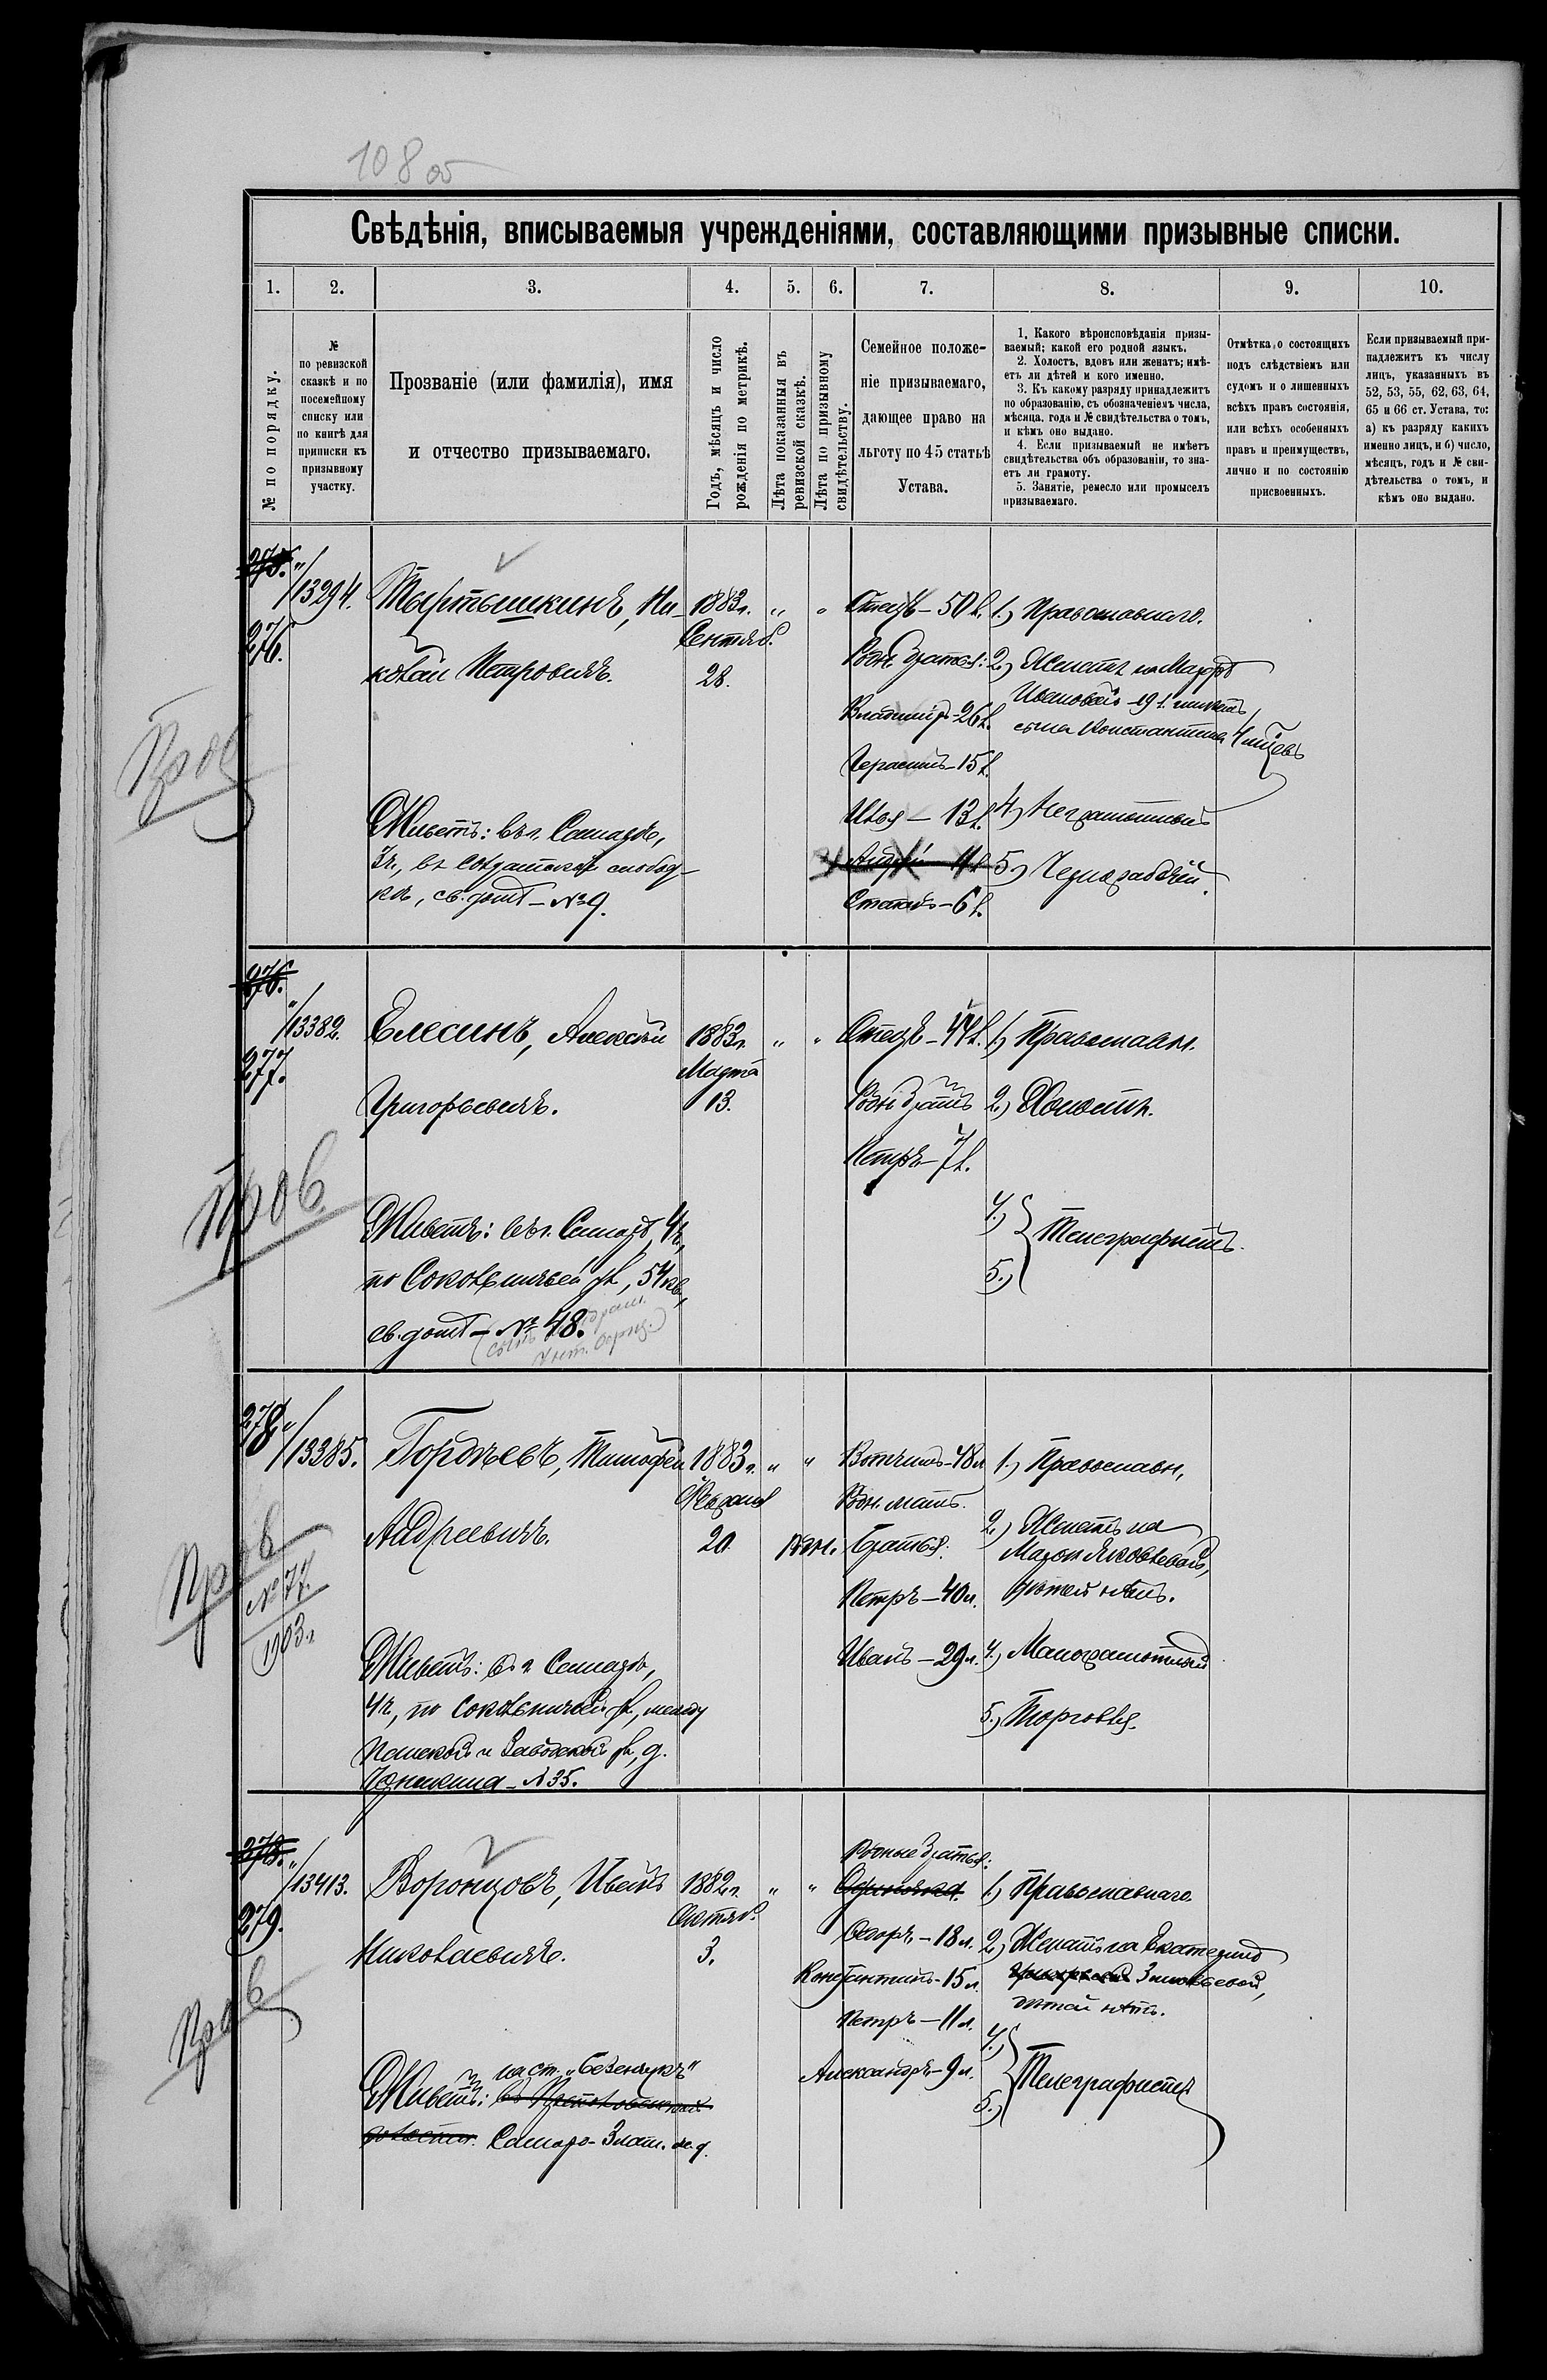 108 об
Свѣдѣнія, вписываемыя учрежденіями, составляющими призывные списки.
1. 2. 3. 4. 5. 6. 7. 8. 9. 10.
№ по порядку.
№
по ревизской
сказкѣ и по
посемейному
списку или
по книгѣ для
приписки къ
призывному
участку.
Прозваніе (или фамилія), имя
и отчество призываемаго.
Годъ, мѣсяцъ и число
рожденія по метрикѣ.
Лѣта показанныя въ
ревизской сказкѣ.
Лѣта по призывному
свидѣтельству.
Семейное положе-
ніе призываемаго,
дающее право на
льготу по 45 статьѣ
Устава.
1. Какого вѣроисповѣданія призы-
ваемый; какой его родной языкъ.
2. Холостъ, вдовъ или женатъ; имѣ-
етъ ли дѣтей и кого именно.
3. Къ какому разряду принадлежитъ
по образованію, съ обозначеніемъ числа,
мѣсяца, года и № свидѣтельства о томъ,
и кѣмъ оно выдано.
4. Если призываемый не имѣетъ
свидѣтельства объ образованіи, то зна-
етъ ли грамоту.
5. Занятіе, ремесло или промыселъ
призываемаго.
Отмѣтка о состоящихъ
подъ слѣдствіемъ или
судомъ и о лишенныхъ
всѣхъ правъ состоянія,
или всѣхъ особенныхъ
правъ и преимуществъ,
лично и по состоянію
присвоенныхъ.
Если призываемый при-
надлежитъ къ числу
лицъ, указанныхъ въ
52, 53, 55, 62, 63, 64,
65 и 66 ст. Устава, то:
а) къ разряду какихъ
именно лицъ, и б) число,
мѣсяцъ, годъ и № сви-
дѣтельства о томъ, и
кѣмъ оно выдано.
275.
276.
"/13294.
Пров
Тыртышкинъ, Ни-
колай Петровичъ.
Живетъ: въ г. Самарѣ,
3 ч., въ Солдатской слобод-
кѣ, св. домъ - № 9.
1883 г.
Сентяб.
28.
" "
Отецъ - 50 л.
Родн. братья:
Владиміръ - 26 л.
Герасимъ - 15 л.
Илья - 13 л.
Андрей - 11 л.
Степанъ - 6 л.
1.) Православнаго.
2.) Женатъ на
19 л. имѣетъ
сына Константина 4 мѣсяцевъ
4.) Неграмотный
5.) Чернорабочій.
276.
277.
"/13382.
Пров.
Елесинъ, Алексѣй
Григорьевичъ.
Живетъ: въ г. Самарѣ, 4 ч.,
по Сокольничьей ул., 54 кв.,
св. домъ - № 48.
1883 г.
Марта
13.
" "
Отецъ - 44 л.
Родн. братъ
Петръ - 7 л.
1.) Православн.
2.) Холостъ.
4.)
5.) Телеграфистъ.
278.
"/13385.
Пров
№ 77.
1903 г.
Гордѣевъ, Тимофей
Андреевичъ.
Живетъ: въ г. Самарѣ,
4 ч., по Сокольничьей ул., между
Панской и Заводской ул., д.
№ 35.
1883 г.
Февраля
20
" "
Вотчимъ - 48 л.
Родн. мать.
Родн. братья:
Петръ - 40 л.
Иванъ - 29 л.
1.) Православн.,
2.) Женатъ на
Яковлевой,
дѣтей нѣтъ.
4.) Малограмотный
5.) Торговля.
278.
279.
"/13413.
Пров
Воронцовъ, Иванъ
Николаевичъ.
Живетъ: на ст. „Безенчукъ"
Самаро-Злат. ж. д.
1882 г.
Октяб.
3.
" "
Родные братья:
Одиночка.
Ѳедоръ - 18 л.
Константинъ - 15 л.
Петръ - 11 л.
Александръ - 9 л.
1.) Православнаго
2.) Женатъ на Екатеринѣ
дѣтей нѣтъ.
4.)
5.) Телеграфистъ